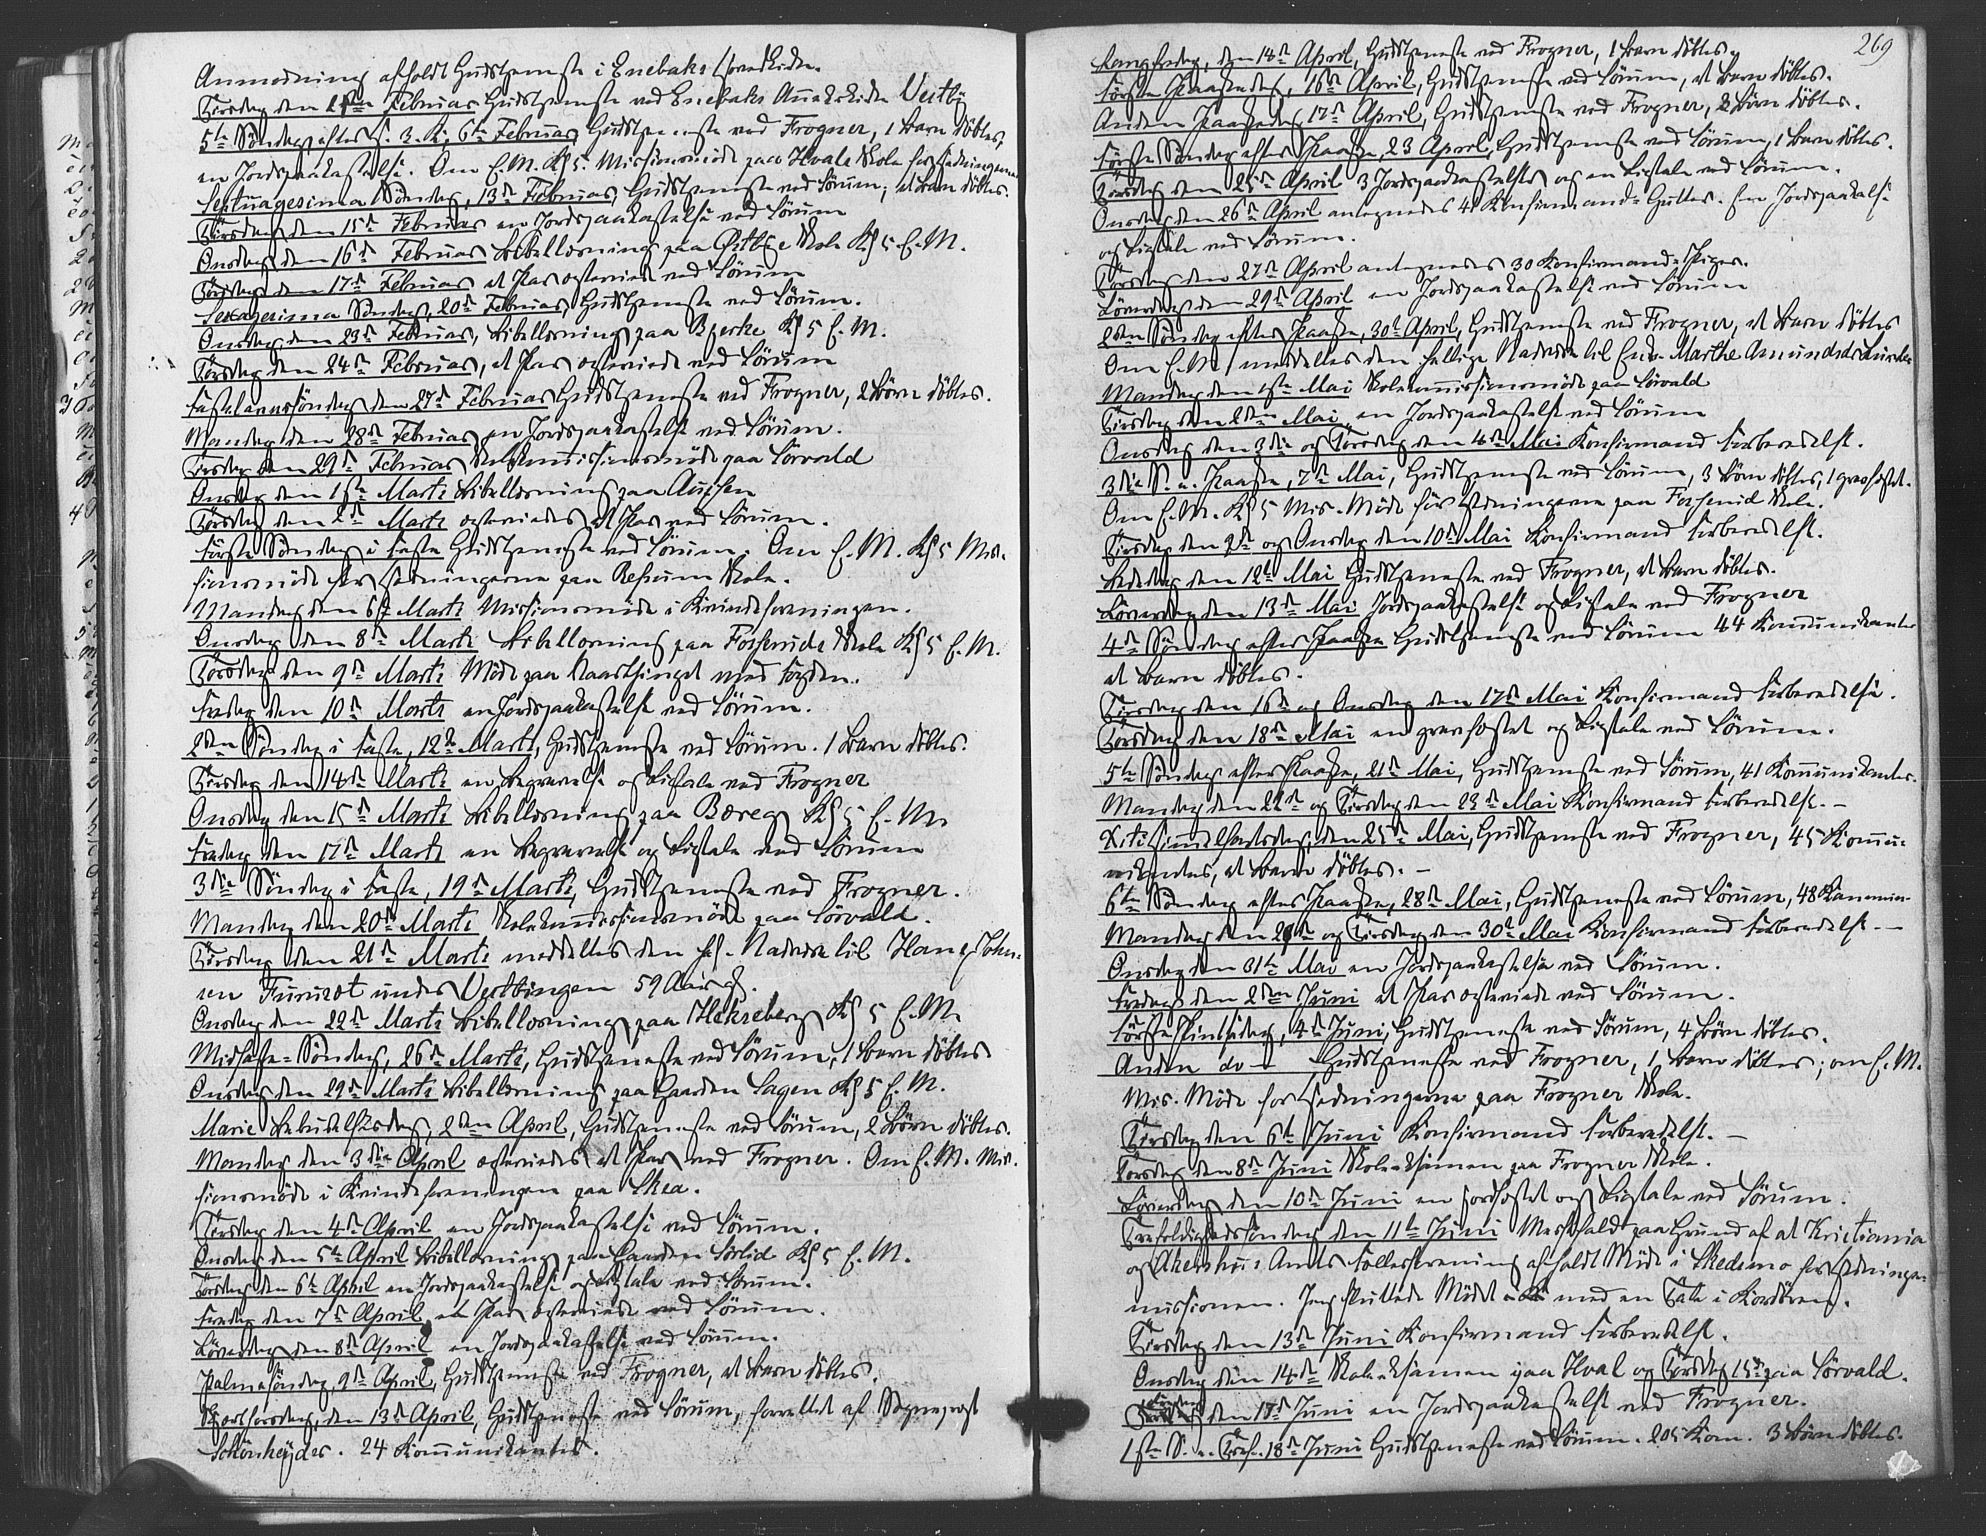 Anmodning afholdt Gudstjeneste i Enebaks Hovedkirke.
Tirsdag den 1ste Februar Gudstjeneste ved Enebaks Annekskirke Vestby
5te Søndag efter H. 3. K. 6te Februar, Gudstjeneste ved Frogner, 1 Barn døbtes,
en Jordpaakastelse. Om E.M. Kl 5. Missionsmøde paa Hvals Skole for Hedningerne
Septuagesima Søndag, 13de Februar, Gudstjeneste ved Sørum; et Barn døbtes.
Tirsdag den 15de Februar en Jordpaakastelse ved Sørum
Onsdag den 16de Februar Bibellæsning paa Østbye Skole Kl 5 E.M.
Torsdag den 17de Februar et Par ægteviet ved Sørum
Sexagesima Søndag, 20de Februar, Gudstjeneste ved Sørum.
Onsdag den 23de Februar, Bibellæsning paa Bjerke Kl 5 E.M.
Torsdag den 24de Februar, et Par ægteviet ved Sørum
Fastelavnssøndag den 27de Februar Gudstjeneste ved Frogner, 2 Børn døbtes.
Mandag den 28de Februar en Jordpaakastelse ved Sørum.
Tirsdag den 29de Februar Skolekommissionsmøde paa Sørvald
Onsdag den 1ste Marts Bibellæsning paa
Torsdag den 2den Marts ægteviedes et Par ved Sørum.
Første Søndag i Faste Gudstjeneste ved Sørum. Om E.M. Kl 5 Mis-
sionsmøde for Hedningerne paa Refsum Skole.
Mandag den 6te Marts Missionsmøde i Kvindeforeningen.
Onsdag den 8de Marts Bibellæsning paa Fossmids Skole Kl 5 E.M.
Torsdag den 9de Marts Møde paa Vaarthinget med Fogden.
Fredag den 10de Marts en Jordpaakastelse ved Sørum.
2den Søndag i Faste, 12te Marts, Gudstjeneste ved Sørum. 1 Barn døbtes.
Tirsdag den 14de Marts en Begravelse og Ligtale ved Frogner
Onsdag den 15de Marts Bibellæsning paa Boreg Kl 5 E.M.
Fredag den 17de Marts en Begravelse og Ligtale ved Sørum
3die Søndag i Faste, 19de Marts, Gudstjeneste ved Frogner.
Mandag den 20de Marts Skolekommissionsmøde paa Sørvald.
Tirsdag den 21de Marts meddeltes den hel. Nadvere til Hans Johan-
sen Fururot under Vestbingen 59 Aar gl.
Onsdag den 22de Marts Bibellæsning paa Hekseberg Kl 5 E.M.
Midfaste-Søndag, 26de Marts, Gudstjeneste ved Sørum, 1 Barn døbtes
Onsdag den 29de Marts Bibellæsning paa Gaarden Sagen Kl 5 E.M.
Marie Bebudelsesdag, 2den April, Gudstjeneste ved Sørum, 2 Børn døbtes.
Mandag den 3die April ægteviedes et Par ved Frogner. Om E.M. Mis-
sionsmøde i Kvindeforeningen paa Skea.
Tirsdag den 4de April en Jordpaakastelse ved Sørum.
Onsdag den 5te April Bibellæsning paa Gaarden Sørlid Kl 5 E.M.
Torsdag den 6te April en Jordpaakastelse og Ligtale ved Sørum.
Fredag den 7de April, et Par ægteviet ved Sørum.
Løverdag den 8de April en Jordpaakastelse ved Sørum.
Palmesøndag, 9de April, Gudstjeneste ved Frogner, et Barn døbtes.
Skjærtorsdag, den 13de April, Gudstjeneste ved Sørum, forrettet af Sogneprest
Schönheyder. 24 Kommunikanter.
269
Langfredag, den 14de April, Gudstjeneste ved Frogner, 1 Barn døbtes.
Første Paaskedag, 16de April, Gudstjeneste ved Sørum, et Barn døbtes.
Anden Paaskedag 17de April, Gudstjeneste ved Frogner, 2 Børn døbtes.
Første Søndag efter Paaske, 23 April, Gudstjeneste ved Sørum, 1 Barn døbtes.
Tirsdag den 25de April 3 Jordpaakastelser og en Ligtale ved Sørum.
Onsdag den 26de April antegnedes 41 Konfirmand-Gutter. En Jordpaakastelse
og Ligtale ved Sørum.
Torsdag den 27de April antegnedes 30 Konfirmand-Piger.
Løverdag den 29de April en Jordpaakastelse ved Sørum
2den Søndag efter Paaske, 30te April, Gudstjeneste ved Frogner, et Barn døbtes
Om E.M. meddeltes den hellige Nadvere til Enke Marthe Amundsdr
Mandag den 1ste Mai Skolekommissionsmøde paa Sørvald
Tirsdag den 2den Mai en Jordpaakastelse ved Sørum
Onsdag den 3die og Torsdag den 4de Mai Konfirmand Forberedelse.
3die S. e. Paaske, 7de Mai, Gudstjeneste ved Sørum, 3 Børn døbtes, 1 gravfæstet.
Om E.M. Kl 5 Mis. Møde for Hedningerne paa Fossmid Skole.
Tirsdag den 9de og Onsdag den 10de Mai Konfirmand Forberedelse.
Bededag den 12te Mai Gudstjeneste ved Frogner, et Barn døbtes.
Løverdag den 13de Mai Jordpaakastelse og Ligtale ved Frogner
4de Søndag efter Paaske Gudstjeneste ved Sørum 44 Kommunikanter
et Barn døbtes.
Tirsdag den 16de og Onsdag den 17de Mai Konfirmand Forberedelse.
Torsdag den 18de Mai en gravfæstet og Ligtale ved Sørum.
5te Søndag efter Paaske, 21de Mai, Gudstjeneste ved Sørum, 41 Kommunikanter.
Mandag den 22de og Tirsdag den 23de Mai Konfirmand Forberedelse. –
Kristi Himmelfartsdag, den 25de Mai, Gudstjeneste ved Frogner, 45 Kommu-
nikanter, et Barn døbtes. –
6te Søndag efter Paaske, 28de Mai, Gudstjeneste ved Sørum, 48 Kommun.
Mandag den 29de og Tirsdag den 30te Mai Konfirmand Forberedelse. –
Onsdag den 31te Mai en Jordpaakastelse ved Sørum.
Fredag den 2den Juni et Par ægteviet ved Sørum.
Første Pintsedag, 4de Juni, Gudstjeneste ved Sørum, 4 Børn døbtes.
Anden do – Gudstjeneste ved Frogner, 1 Barn døbtes; om E.M.
Mis. Møde for Hedningerne paa Frogner Skole.
Tirsdag den 6te Juni Konfirmand Forberedelse. –
Torsdag den 8de Juni Skoleeksamen paa Frogner Skole.
Løverdag den 10de Juni en jordfæstet og Ligtale ved Sørum.
Trefoldighedssøndag den 11te Juni Messefald paa Grund af at Kristiania
og Akershus Amts Fællesforening afholdt Møde i Skedsmo for Hedninge-
missionen. Jeg sluttede Mødet med en Tale i Kordøren.
Tirsdag den 13de Juni Konfirmand Forberedelse.
Onsdag den 14de Skoleeksamen paa Hval og Torsdag 15de paa Sørvald.
den 17de Juni en Jordpaakastelse ved Frogner.
1ste S. e. Tref. 18de Juni Gudstjeneste ved Sørum. 205 Kom. 3 Børn døbtes.